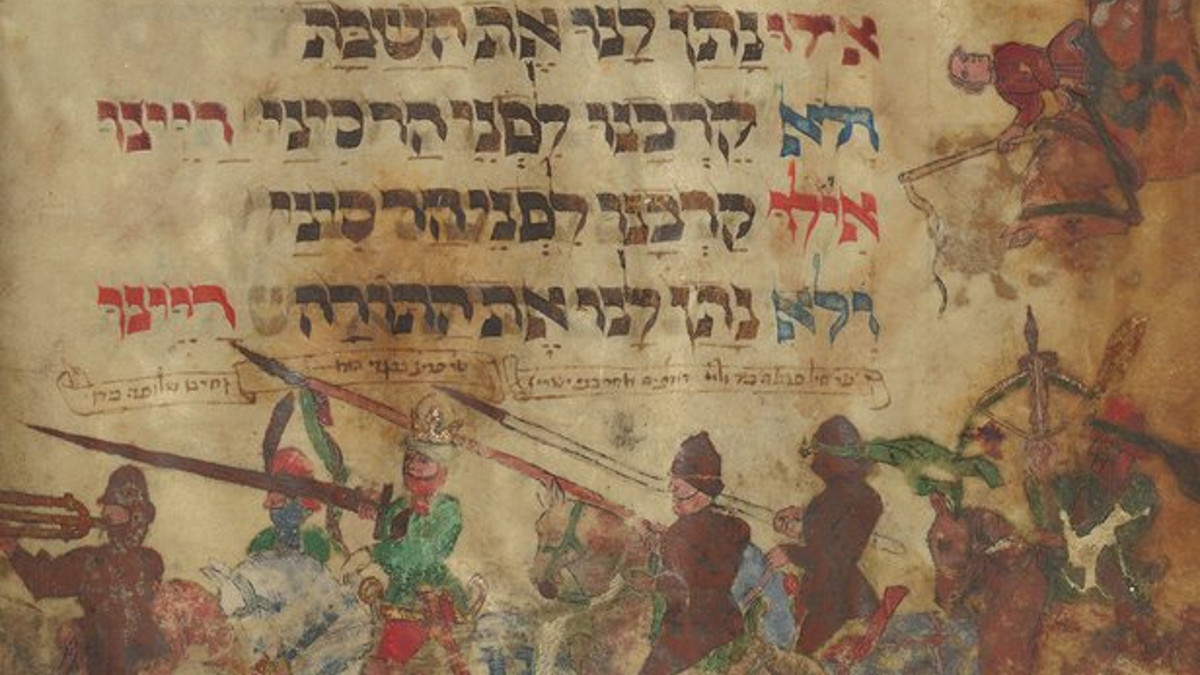 אילו נתן לנו את השבת
ולא קרבנו לפני הר סיני דיינו
אילו קרבנו לפני הר סיני
ולא נתן לנו את התורה דיינו